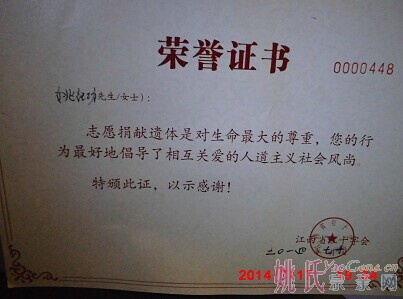 荣誉证书
0000448
先生/女士):
志愿捐献遗体是对生命最大的尊重,您的行
为最好地倡导了相互关爱的人道主义社会风尚。
特颁此证,以示感谢!
江西省红十字会
2014
姚氏宗亲网
YaoGens.cn